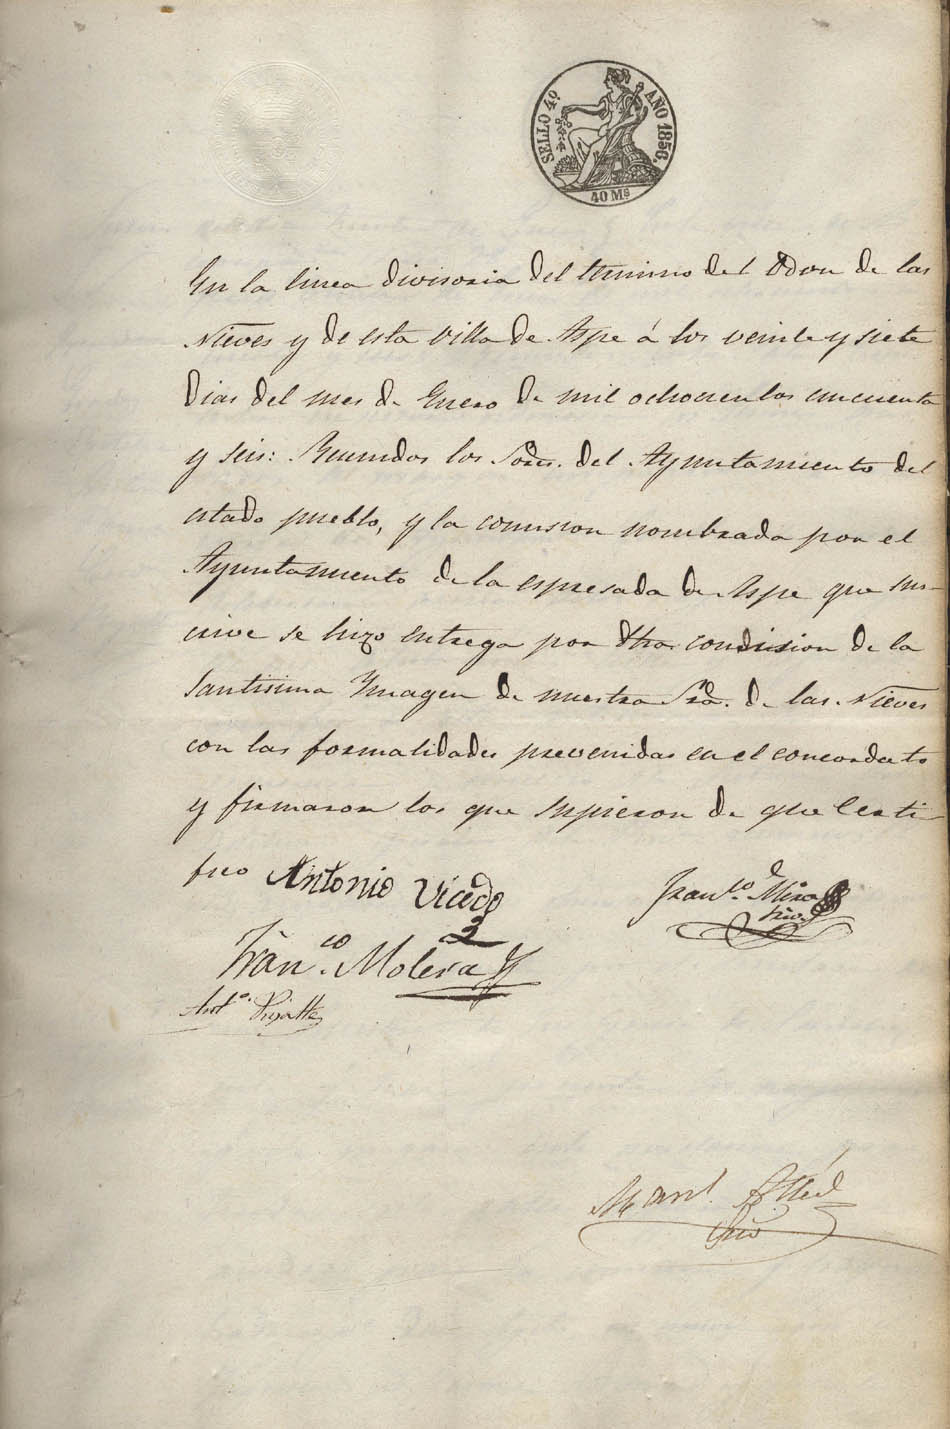 SELLO 4º AÑO 1856.
40 Ms
En la linea divisoria del termino del Odon de las
Nieves y de esta villa de Aspe á los veinte y siete
dias del mes de Enero de mil ochocientos cincuenta
y seis: Reunidos los Sores. del Ayuntamiento del
citado pueblo, y la comision nombrada por el
Ayuntamiento de la espresada de Aspe que sus-
crive se hizo entrega por dha condision de la
Santisima Ymagen de nuestra Sra. de las Nieves
con las formalidades prevenidas en el concordato
y firmaron los que supieron de que Certi-
fico Antonio Vicedo
Franco. Mira
Srio.
Franco. Molera
Anto.
Manl.
Srio